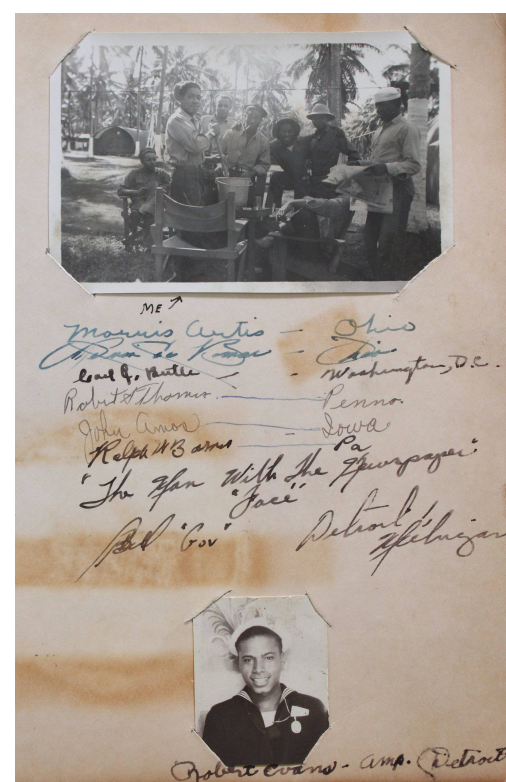 ME
Morris Artis - Ohio
- Ohio
Carl J. Butler - Washington, D.C.
Robert S Thomas Penna.
John Amos - Iowa
Ralph W Barnes Pa
"The Man With The Newspaper"
"Face"
Bill "Gov" Detroit,
Michigan
Robert Evans - Amp. Detroit